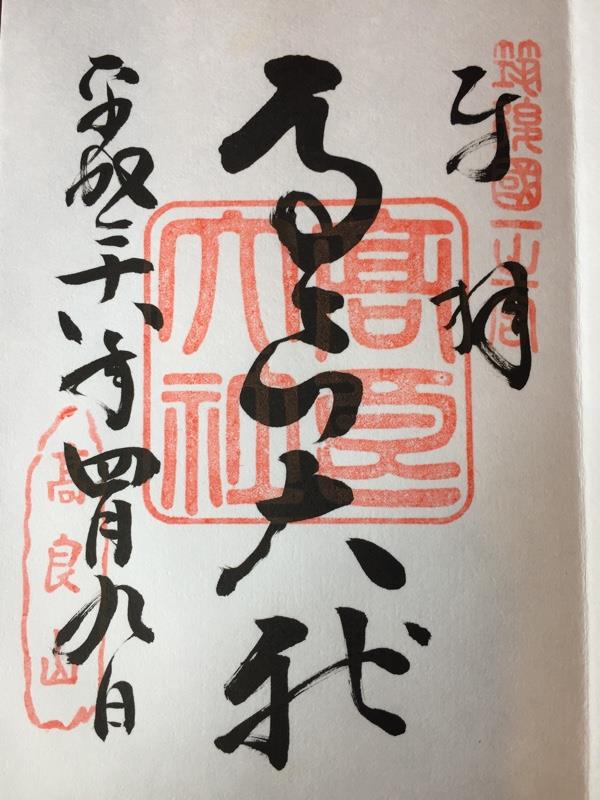 筑後國一之宮
奉拝
高良大社
高良大社
平成二十八年四月九日
高良山